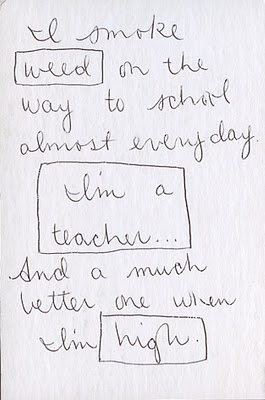 I smoke
weed on the
way to school
almost everyday.
I'm a
teacher...
And a much
better one when
I'm high.